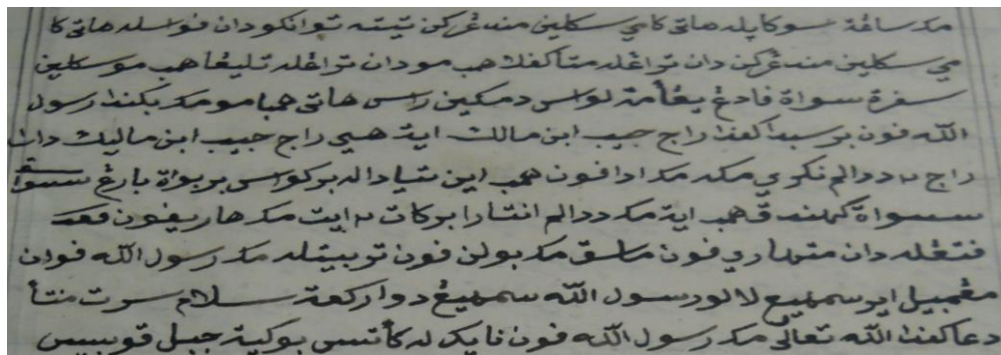 مک سائة سوکاڽله هاتي کامي سکلين مندڠرکن تيته توانکو دان فواسله هاتي کا
مي سکلين مندڠرکن دان تراڠله متا کفلا همب مو دان تراڠله تليڠا همب مو سکلين
سفرة سواة فادڠ يڠ امة لواس دمکين راس هاتي همبا مو مک بکندا رسول
الله فون برسبدا کفدا راج حبيب ابن مالک اية هي راج حبيب ابن ماليک دان
راج٢ ددالم نکري مکه مک ادافون همب اين تيادا له برکواس بربواة بارڠ سسوا
سسواة کهندق همب اية مک ددالم انتارا برکات٢ ايت مک هاريڤون فعـ
فتڠله دان متهاري فون ماسق مک بولن فون تربيتله مک رسول الله فون
مڠمبيل اير سمبهيڠ لالو رسول الله سمبهيڠ دوا رکعة سلام سرت منتا
دعا کفدا الله تعالى مک رسول الله فون نايک له کأتس بوکية جبل قوبيس